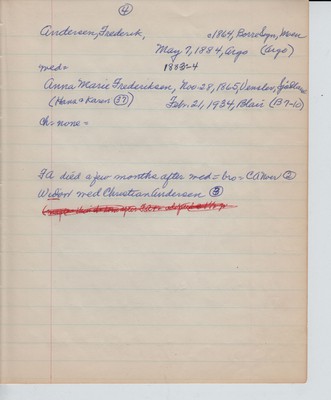 4
Andersen, Frederick, c1864, Borrebyn, Moen
May 7, 1884, Argo (Argo)
med=
1883-4
Anna Marie Frederiksen, Nov-28, 1865, Venslev, Sjælland
(Hans & Karen 37) Feb. 21, 1934, Blair (B7-10)
ch = none =
FA died a few months after med = bro = CANover 2
Widow med Christian Andersen 3